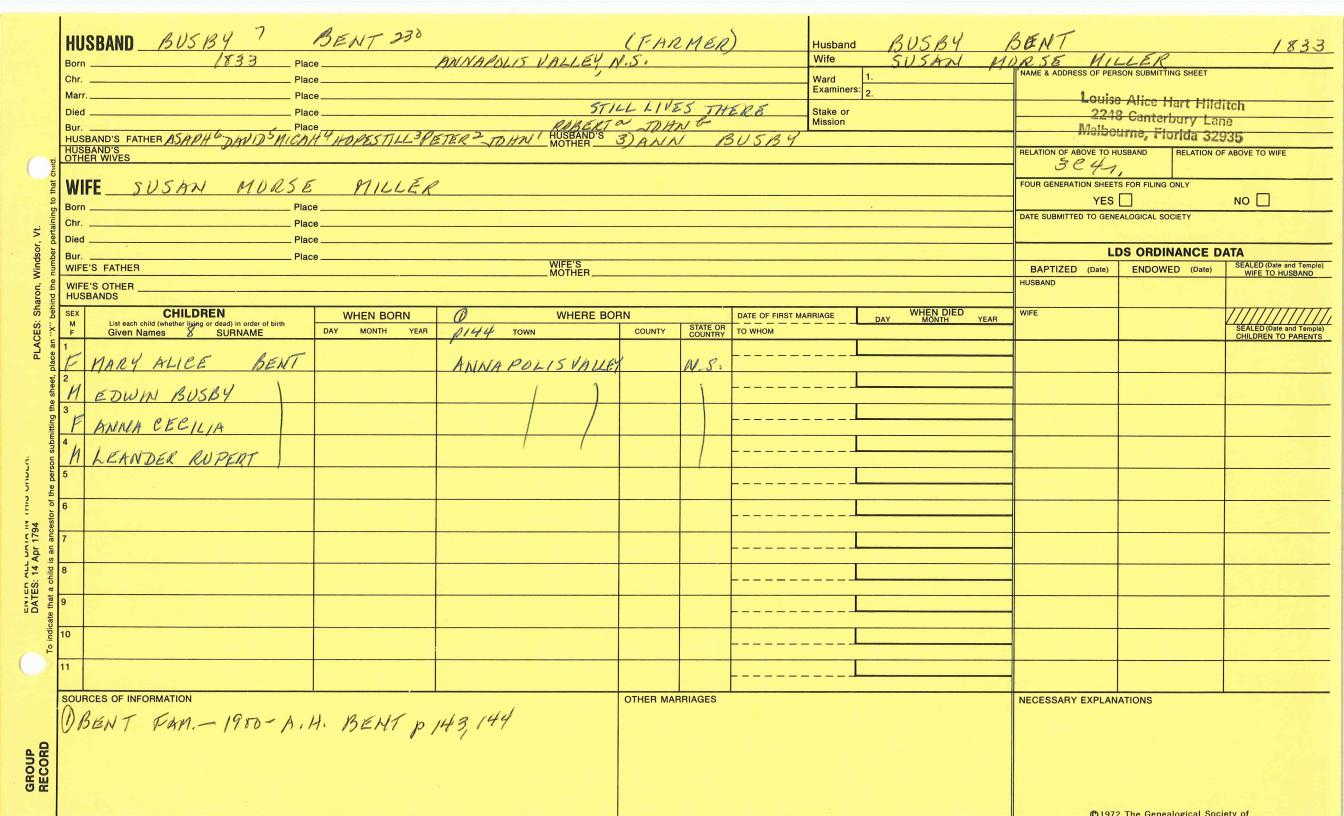 HUSBAND BUSBY 7 BENT 230 (FARMER)
Born 1833 Place ANNAPOLIS VALLEY, N.S.
Chr. Place
Marr. Place
Died Place STILL LIVES THERE
Bur. Place ROBERT JOHN
HUSBAND'S FATHER ASAPH6 DAVID5 MICAH4 HOPESTILL3 PETER2 JOHN1 HUSBAND'S MOTHER 3) ANN BUSBY
HUSBAND'S OTHER WIVES
Husband BUSBY BENT 1833
Wife SUSAN MORSE MILLER
Ward Examiners: 1.
2.
Stake or Mission
NAME & ADDRESS OF PERSON SUBMITTING SHEET
Louise Alice Hart Hilditch
2248 Canterbury Lane
Melbourne, Florida 32935
RELATION OF ABOVE TO HUSBAND RELATION OF ABOVE TO WIFE
3C4r,
FOUR GENERATION SHEETS FOR FILING ONLY
YES NO
DATE SUBMITTED TO GENEALOGICAL SOCIETY
WIFE SUSAN MORSE MILLER
Born Place
Chr. Place
Died Place
Bur. Place
WIFE'S FATHER WIFE'S MOTHER
WIFE'S OTHER HUSBANDS
LDS ORDINANCE DATA
BAPTIZED (Date) ENDOWED (Date) SEALED (Date and Temple) WIFE TO HUSBAND
HUSBAND
WIFE
SEALED (Date and Temple) CHILDREN TO PARENTS
SEX M F
CHILDREN
List each child (whether living or dead) in order of birth
Given Names 8 SURNAME
WHEN BORN
DAY MONTH YEAR
① WHERE BORN
p144 TOWN COUNTY STATE OR COUNTRY
DATE OF FIRST MARRIAGE
TO WHOM
WHEN DIED
DAY MONTH YEAR
1 F MARY ALICE BENT ANNAPOLIS VALLEY N.S.
2 M EDWIN BUSBY
3 F ANNA CECILIA
4 M LEANDER RUPERT
5
6
7
8
9
10
11
SOURCES OF INFORMATION
① BENT FAM. - 1900 - A.H. BENT p 143, 144
OTHER MARRIAGES
NECESSARY EXPLANATIONS
©1972 The Genealogical Society of
PLACES: Sharon, Windsor, Vt.
DATES: 14 Apr 1794
To indicate that a child is an ancestor of the person submitting the sheet, place an "X" behind the number pertaining to that child.
GROUP RECORD